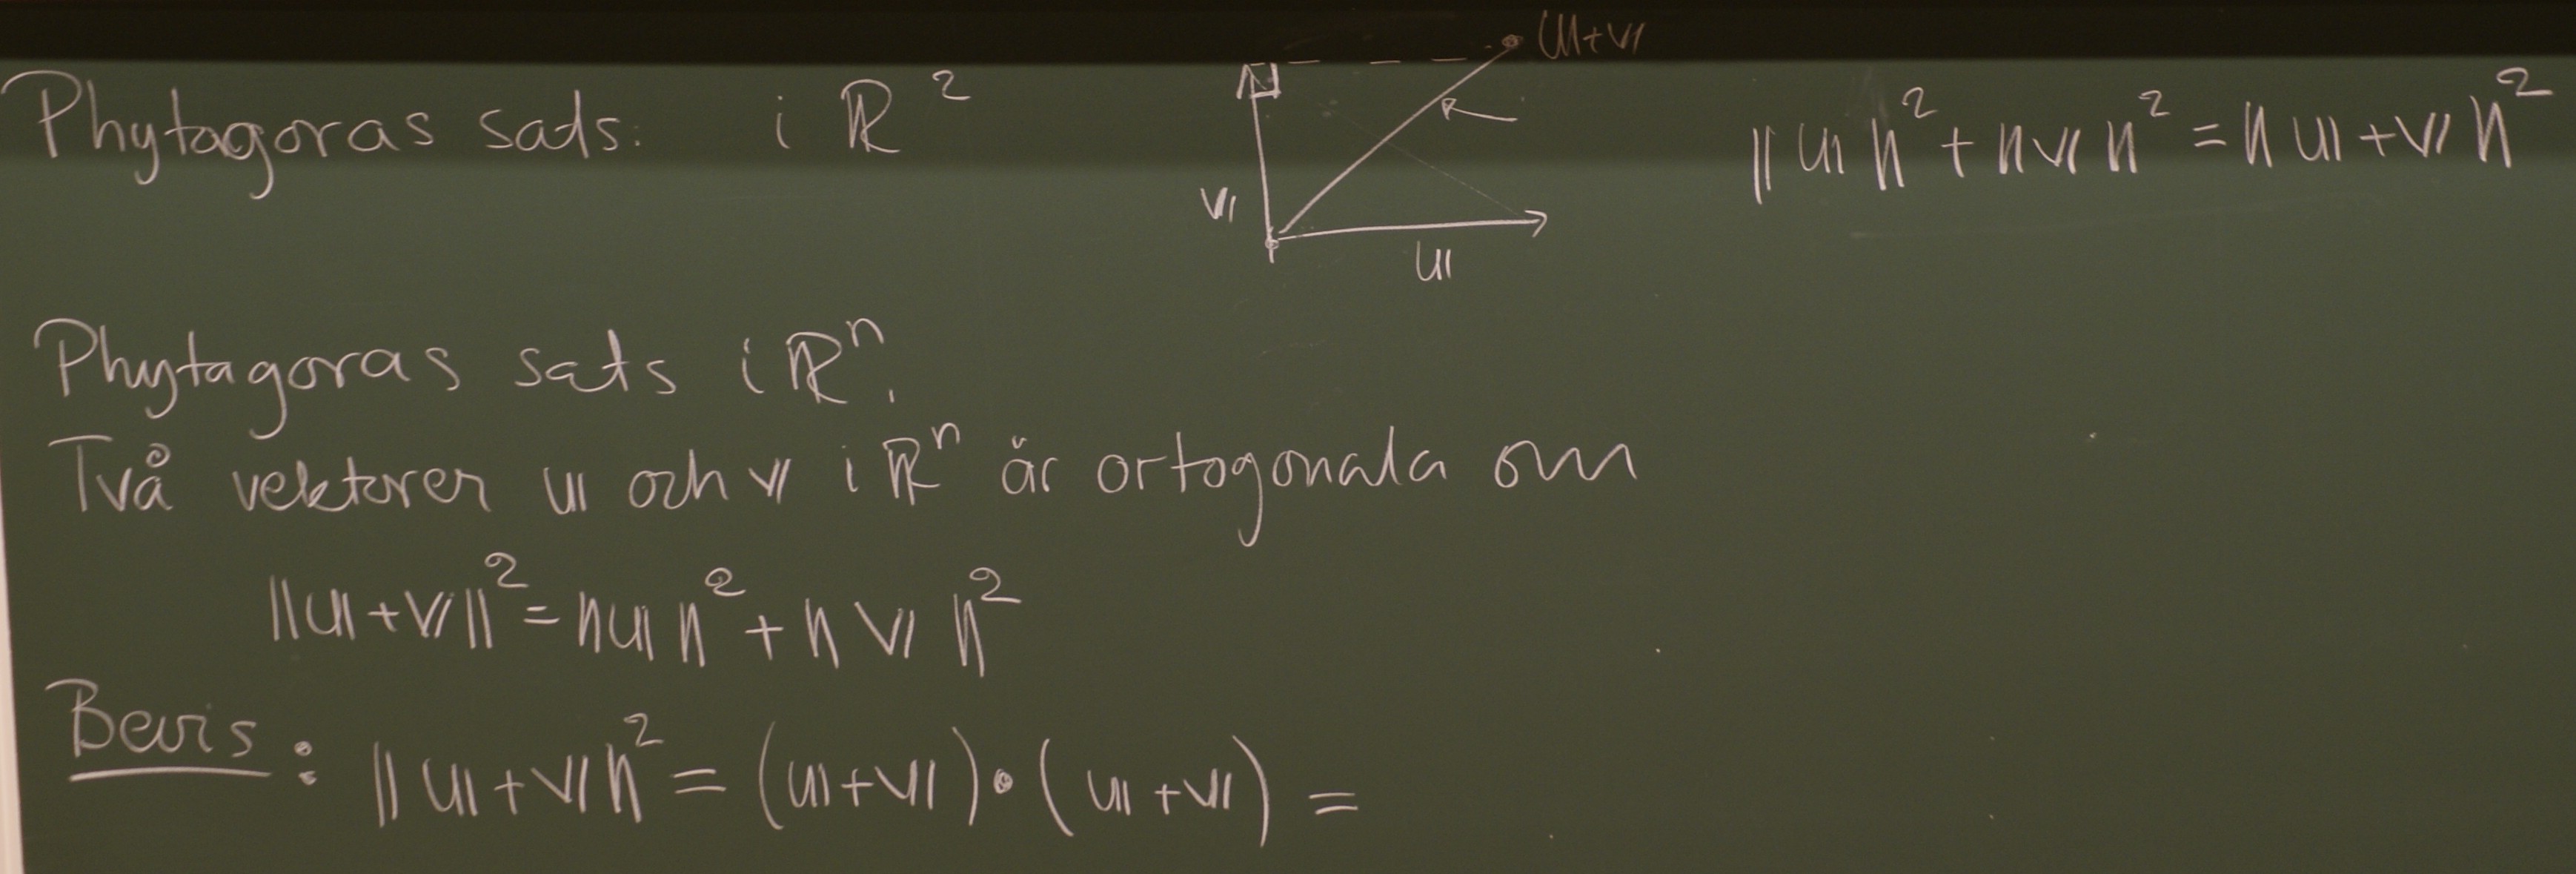 Phytagoras sats: i ℝ² 𝕦+𝕧 ‖𝕦‖² + ‖𝕧‖² = ‖𝕦+𝕧‖²
𝕧
𝕦
Phytagoras sats i ℝⁿ.
Två vektorer 𝕦 och 𝕧 i ℝⁿ är ortogonala om
‖𝕦+𝕧‖² = ‖𝕦‖² + ‖𝕧‖²
Bevis: ‖𝕦+𝕧‖² = (𝕦+𝕧)•(𝕦+𝕧) =